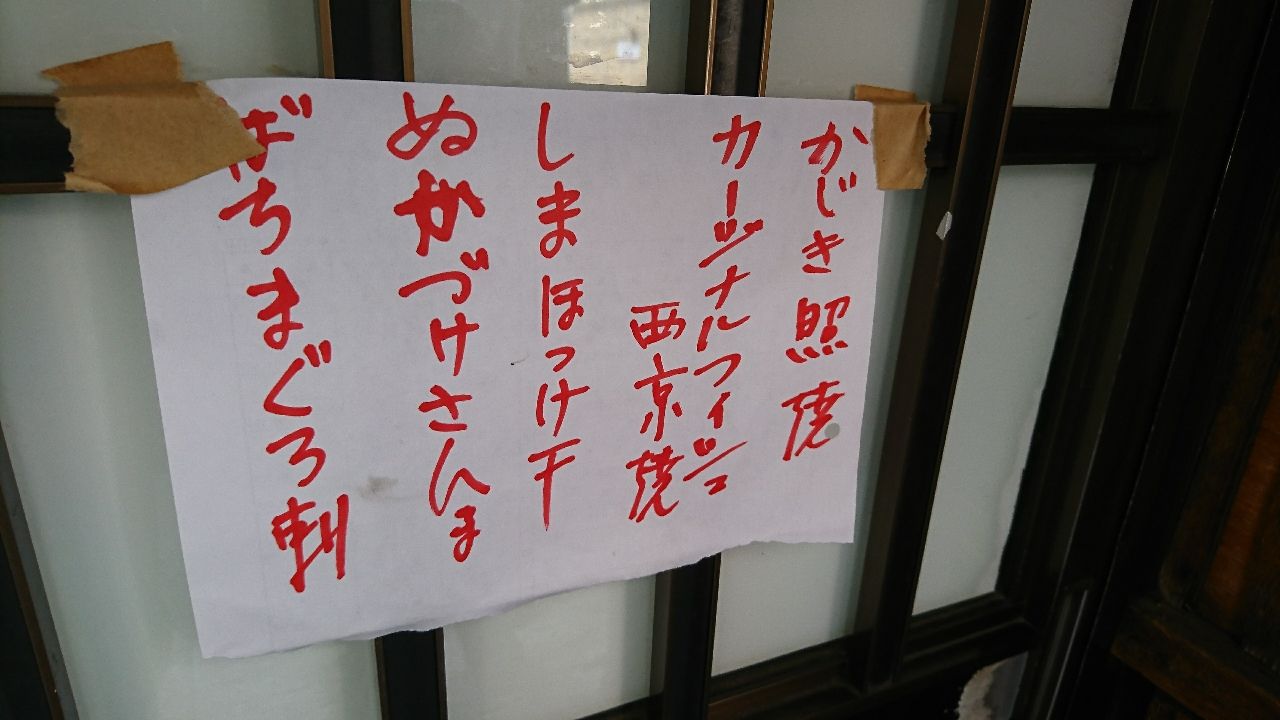 かじき照焼
カージナルフィッシュ
西京焼
しまほっけ干
ぬかづけさんま
ばちまぐろ刺